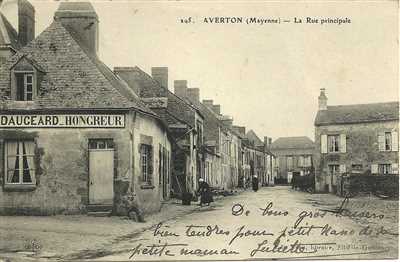 245. AVERTON (Mayenne) — La Rue principale
DAUCEARD_HONGREUR
De bons gros baisers
bien tendres pour petit Nano de
petite maman Juliette
libraire,